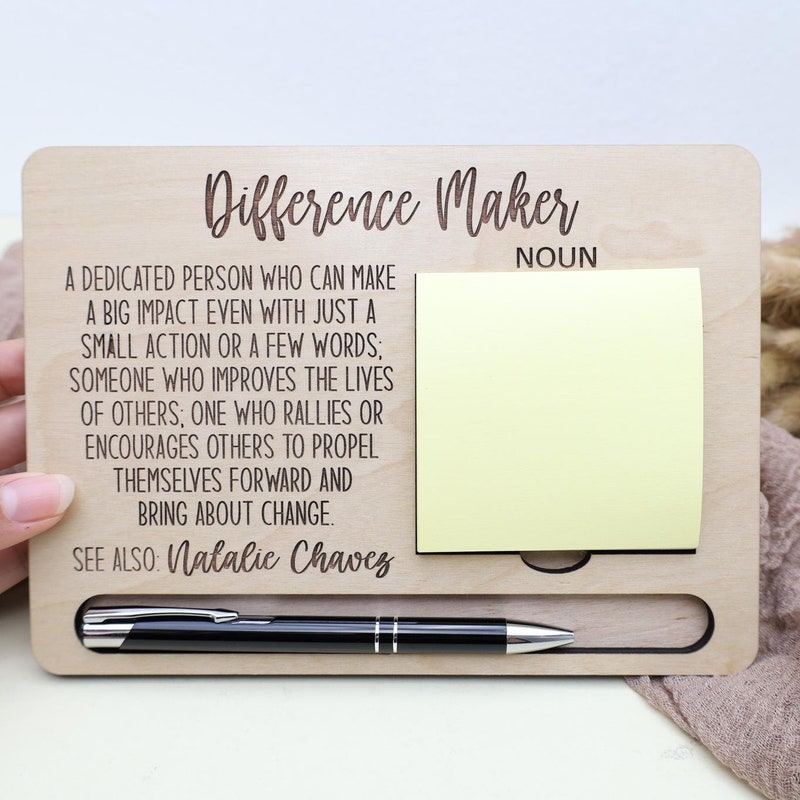 Difference Maker
NOUN
A DEDICATED PERSON WHO CAN MAKE
A BIG IMPACT EVEN WITH JUST A
SMALL ACTION OR A FEW WORDS;
SOMEONE WHO IMPROVES THE LIVES
OF OTHERS; ONE WHO RALLIES OR
ENCOURAGES OTHERS TO PROPEL
THEMSELVES FORWARD AND
BRING ABOUT CHANGE.
SEE ALSO: Natalie Chavez